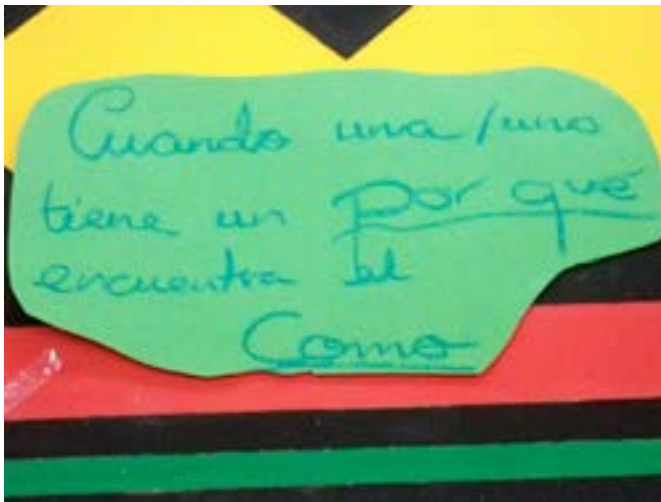 Cuando una/uno
tiene un por qué
encuentra el
Como